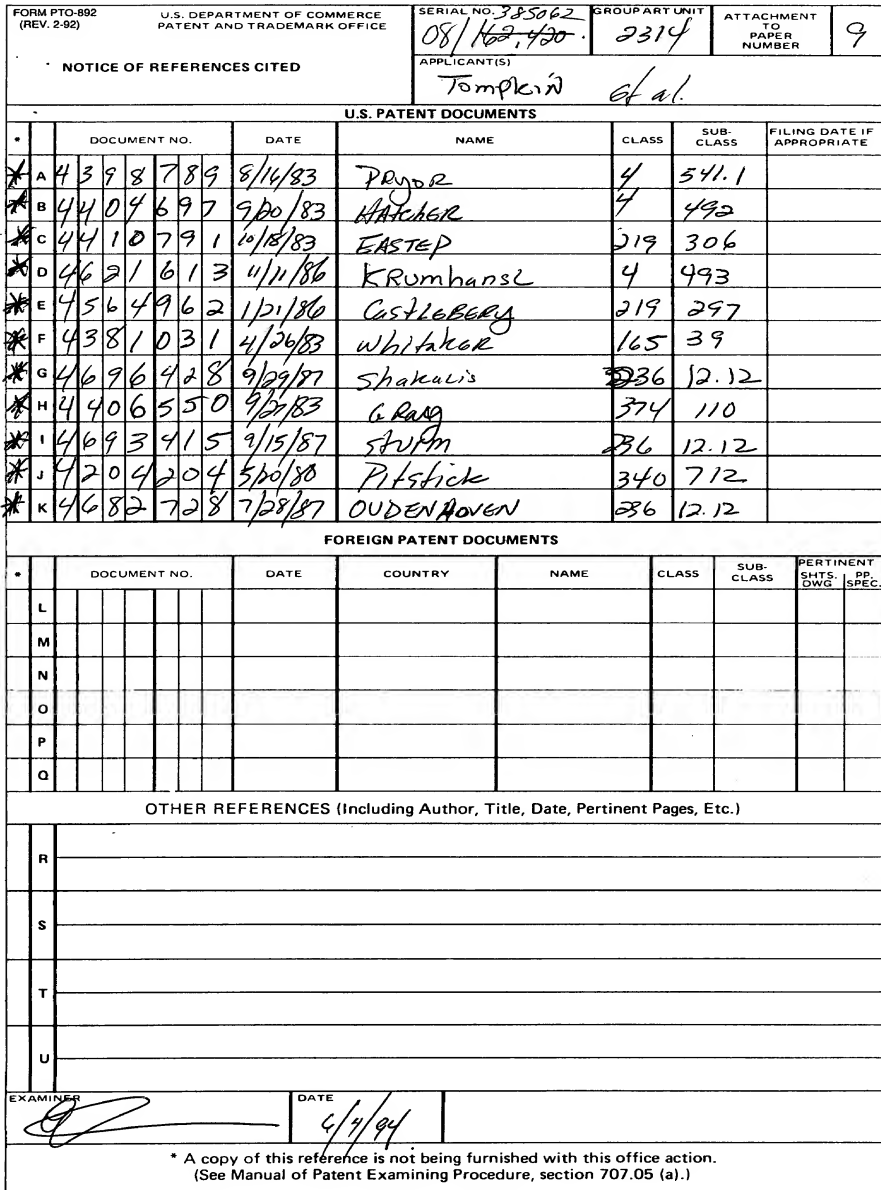 FORM PTO-892
(REV. 2-92)
U.S. DEPARTMENT OF COMMERCE
PATENT AND TRADEMARK OFFICE
SERIAL NO. 385062
08/162,420
GROUP ART UNIT
2314
ATTACHMENT
TO
PAPER
NUMBER
9
NOTICE OF REFERENCES CITED
APPLICANT(S)
Tompkin et al.
U.S. PATENT DOCUMENTS
* DOCUMENT NO. DATE NAME CLASS SUB-CLASS FILING DATE IF APPROPRIATE
* A 4398789 8/16/83 PRyoR 4 541.1
* B 4404697 9/20/83 HATcheR 4 492
* C 4410791 10/18/83 EASTEP 219 306
* D 4621613 11/11/86 KRumhansL 4 493
* E 4564962 1/21/86 CastLeBERy 219 297
* F 4381031 4/26/83 whitakeR 165 39
* G 4696428 9/29/87 Shakalis 236 12.12
* H 4406550 9/27/83 374 110
* I 4693415 9/15/87 sturm 236 12.12
* J 4204204 5/20/80 Pitstick 340 712
* K 4682728 7/28/87 OUDENHOVEN 236 12.12
FOREIGN PATENT DOCUMENTS
* DOCUMENT NO. DATE COUNTRY NAME CLASS SUB-CLASS PERTINENT SHTS. DWG PP. SPEC.
L
M
N
O
P
Q
OTHER REFERENCES (Including Author, Title, Date, Pertinent Pages, Etc.)
R
S
T
U
EXAMINER
DATE
6/4/94
* A copy of this reference is not being furnished with this office action.
(See Manual of Patent Examining Procedure, section 707.05 (a).)